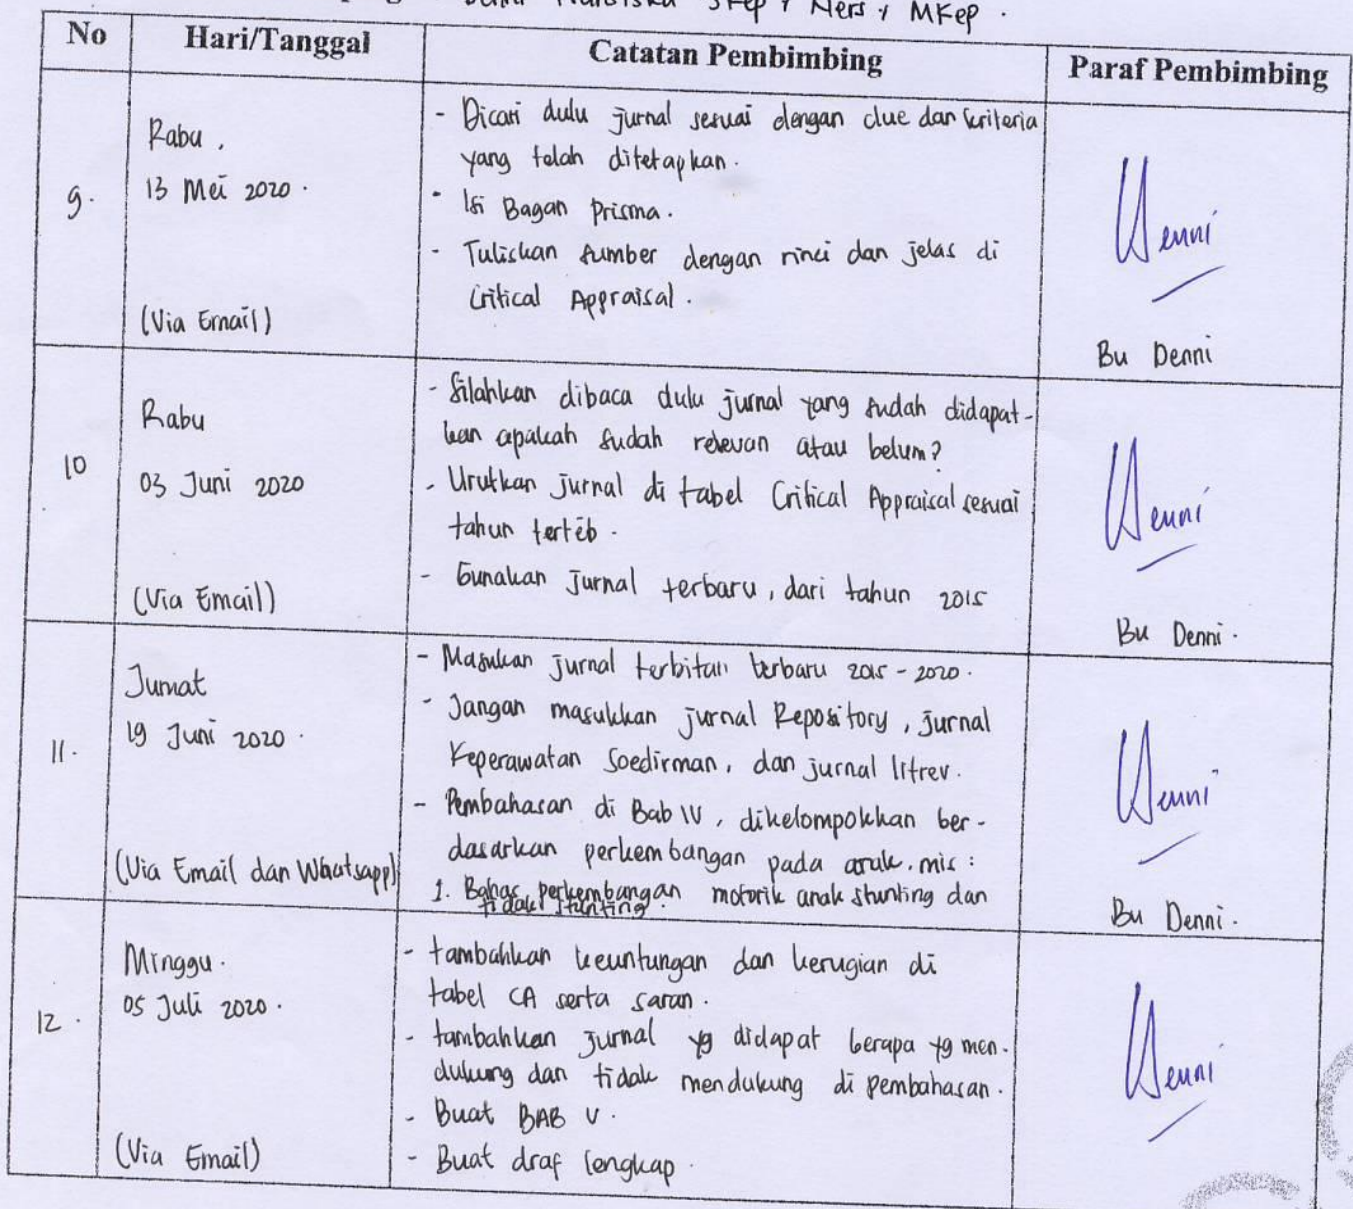 SKep, Ners, MKep.
No Hari/Tanggal Catatan Pembimbing Paraf Pembimbing
9.
Rabu,
13 Mei 2020.
(Via Email)
- Dicari dulu jurnal sesuai dengan clue dan kriteria
yang telah ditetapkan.
- Isi Bagan Prisma.
- Tuliskan sumber dengan rinci dan jelas di
Critical Appraisal.
Denni
Bu Denni
10
Rabu
03 Juni 2020
(Via Email)
- Silahkan dibaca dulu jurnal yang sudah didapat-
kan apakah sudah relevan atau belum?
- Urutkan Jurnal di tabel Critical Appraisal sesuai
tahun terteb.
- Gunakan Jurnal terbaru, dari tahun 2015
Denni
Bu Denni.
11.
Jumat
19 Juni 2020.
(Via Email dan Whatsapp)
- Masukan jurnal terbitan terbaru 2015 - 2020.
- Jangan masukkan jurnal Repository, jurnal
Keperawatan Soedirman, dan jurnal litrev.
- Pembahasan di Bab IV, dikelompokkan ber-
dasarkan perkembangan pada anak. mis :
1. Bahas perkembangan motorik anak stunting dan
tidak stunting.
Denni
Bu Denni.
12.
Minggu.
05 Juli 2020.
(Via Email)
- tambahkan keuntungan dan kerugian di
tabel CA serta saran.
- tambahkan Jurnal yg didapat berapa yg men-
dukung dan tidak mendukung di pembahasan.
- Buat BAB V.
- Buat draf lengkap.
Denni